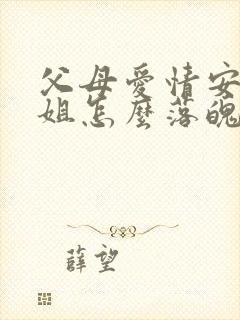 父母愛情安
姐怎麼落魄
薛望